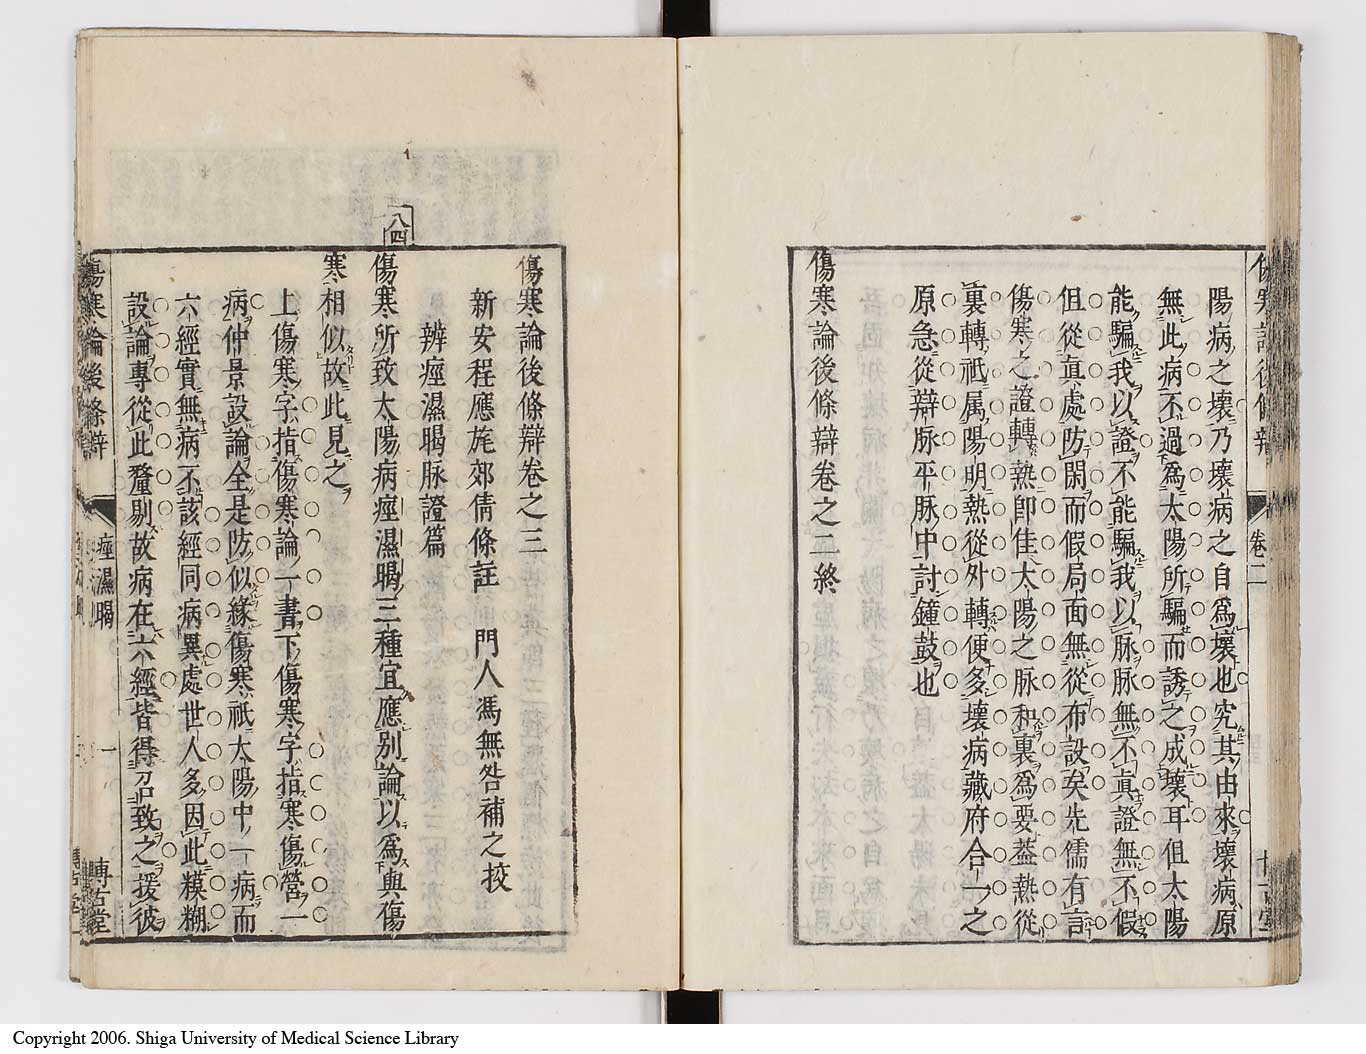 陽病之壞乃壞病之自爲壞也究其由來壞病原
無此病不過爲太陽所騙而誘之成壞耳但太陽
能騙我以證不能騙我以脉脉無不眞證無不假
但從眞處防閑而假局面無從布設矣先儒有言
傷寒之證轉熱卽佳太陽之脉和裏爲要葢熱從
裏轉祗属陽明熱從外轉便多壞病藏府合一之
原急從辯脉平脉中討鐘鼓也
傷寒論後條辯卷之二終
卷二
八四
傷寒論後條辯卷之三
新安程應旄郊倩條註 門人馮無咎補之挍
辨痙濕暍脉證篇
傷寒所致太陽病痙濕暍三種宜應別論以爲與傷
寒相似故此見之
上傷寒字指傷寒論一書下傷寒字指寒傷營一
病仲景設論全是防似緣傷寒祗太陽中一病而
六經實無病不該經同病異處世人多因此糢糊
設論專從此釐剔故病在六經皆得召致之援彼
傷寒論後條辯
痙濕暍
一
博古堂
Copyright 2006. Shiga University of Medical Science Library